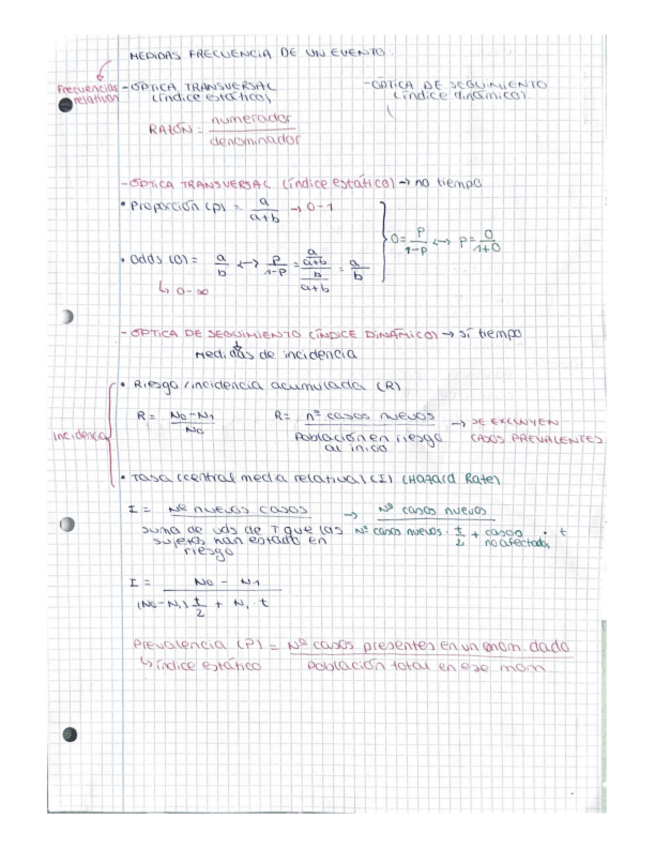 MEDIDAS FRECUENCIA DE UN EVENTO.
Frecuencias relativas
- ÓPTICA TRANSVERSAL (índice estático)
- ÓPTICA DE SEGUIMIENTO (índice dinámico).
RAZÓN = numerador / denominador
- ÓPTICA TRANSVERSAL (índice estático) → no tiempo
• Proporción (p) = a / a+b → 0-1
• Odds (O) = a/b ↔ p / 1-p = (a / a+b) / (b / a+b) = a/b
↳ 0-∞
O = P / 1-P ↔ P = O / 1+O
- ÓPTICA DE SEGUIMIENTO (ÍNDICE DINÁMICO) → sí tiempo
Medidas de incidencia
incidencia
• Riesgo / incidencia acumulada (R)
R = N0 - N1 / N0
R = nº casos nuevos / Población en riesgo al inicio → SE EXCLUYEN CASOS PREVALENTES
• Tasa (central media relativa) (I) (Hazard Rate)
I = Nº nuevos casos / suma de uds de T que las sujetos han estado en riesgo → Nº casos nuevos / Nº casos nuevos · t/2 + casos no afectados · t
I = N0 - N1 / (N0 - N1) t/2 + N1 · t
Prevalencia (P) = Nº casos presentes en un mom. dado / Población total en ese mom.
↳ índice estático